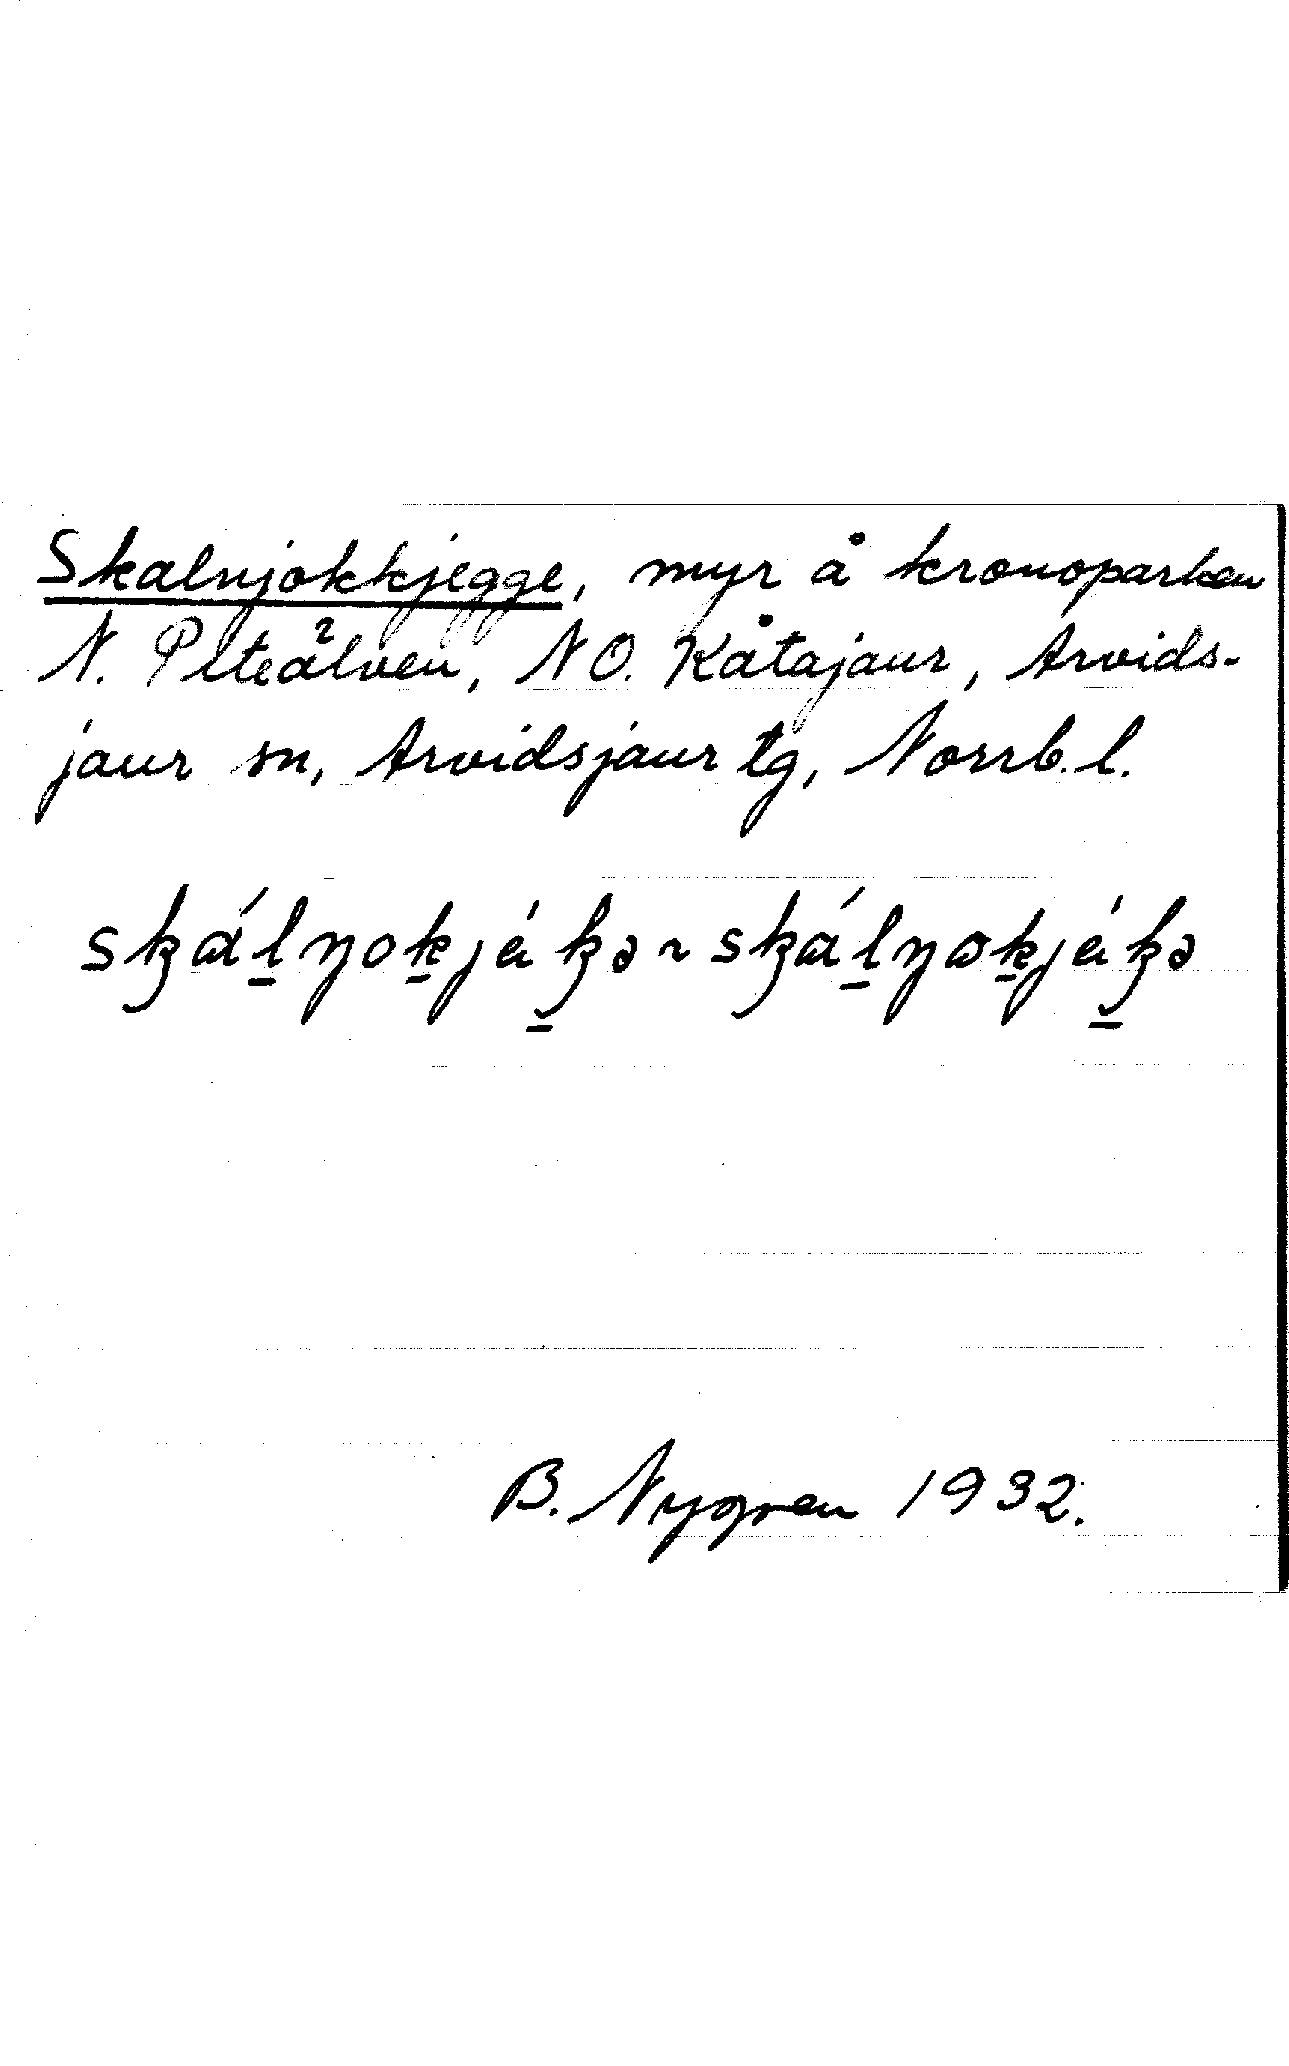 Skalnjokkjegge, myr å kronoparken
N. Piteälven, NO. Kåtajaur, Arvids-
jaur sn, Arvidsjaur tg, Norrb. l.
skál̲ŋok̲jék̲ə ~ skál̲ŋɷk̲jék̲ə
B. Nygren 1932.